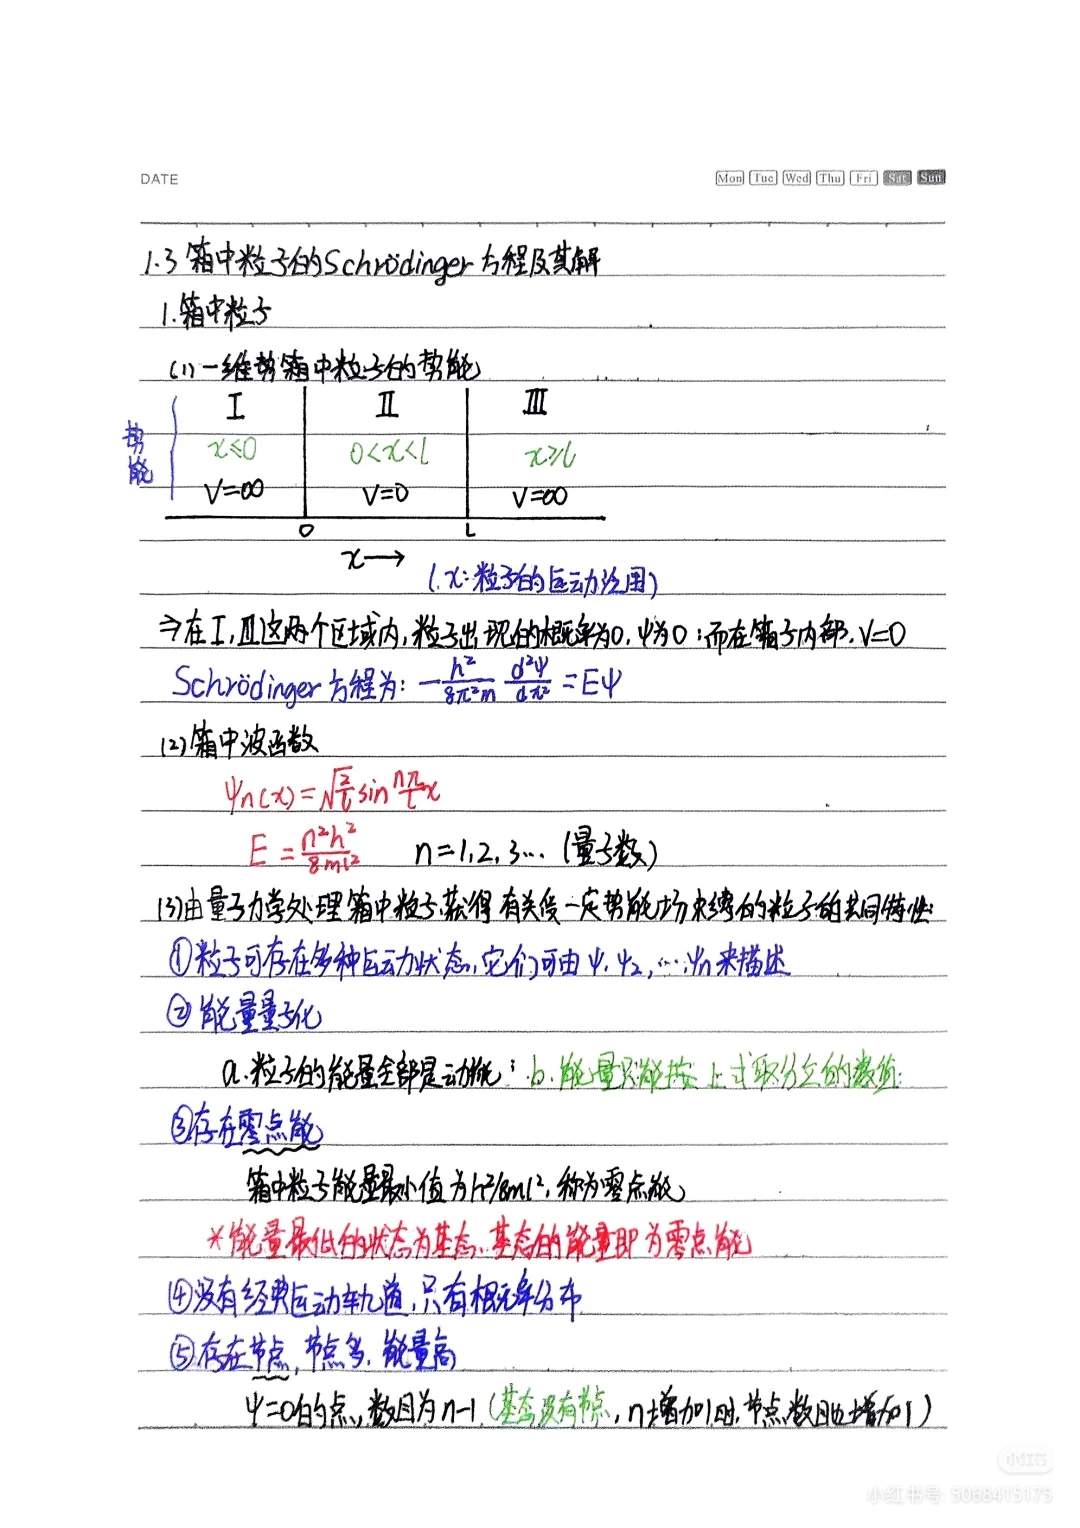 DATE Mon Tue Wed Thu Fri Sat Sun
1.3 箱中粒子的Schrödinger方程及其解
1.箱中粒子
(1)一维势箱中粒子的势能
I II III
势能
x≤0 0<x<l x≥l
V=∞ V=0 V=∞
0 L
x→
(x:粒子的运动范围)
⇒在I,III这两个区域内,粒子出现的概率为0,ψ为0;而在箱子内部,V=0
Schrödinger方程为: -h²/8π²m d²ψ/dx² =Eψ
(2)箱中波函数
ψn(x)=√(2/l) sin nπ/l x
E = n²h²/8ml² n=1,2,3… (量子数)
(3)由量子力学处理箱中粒子,获得有关受一定势能场束缚的粒子的共同特性:
①粒子可存在多种运动状态,它们可由ψ1,ψ2,…,ψn来描述
②能量量子化
a.粒子的能量全部是动能; b.能量只能按上式取分立的数值;
③存在零点能
箱中粒子能量最小值为h²/8ml²,称为零点能
*能量最低的状态为基态,基态的能量即为零点能
④没有经典运动轨道,只有概率分布
⑤存在节点,节点多,能量高
ψ=0的点,数目为n-1(基态没有节点,n增加1时,节点数目也增加1)
小红书
小红书号: 5068415175